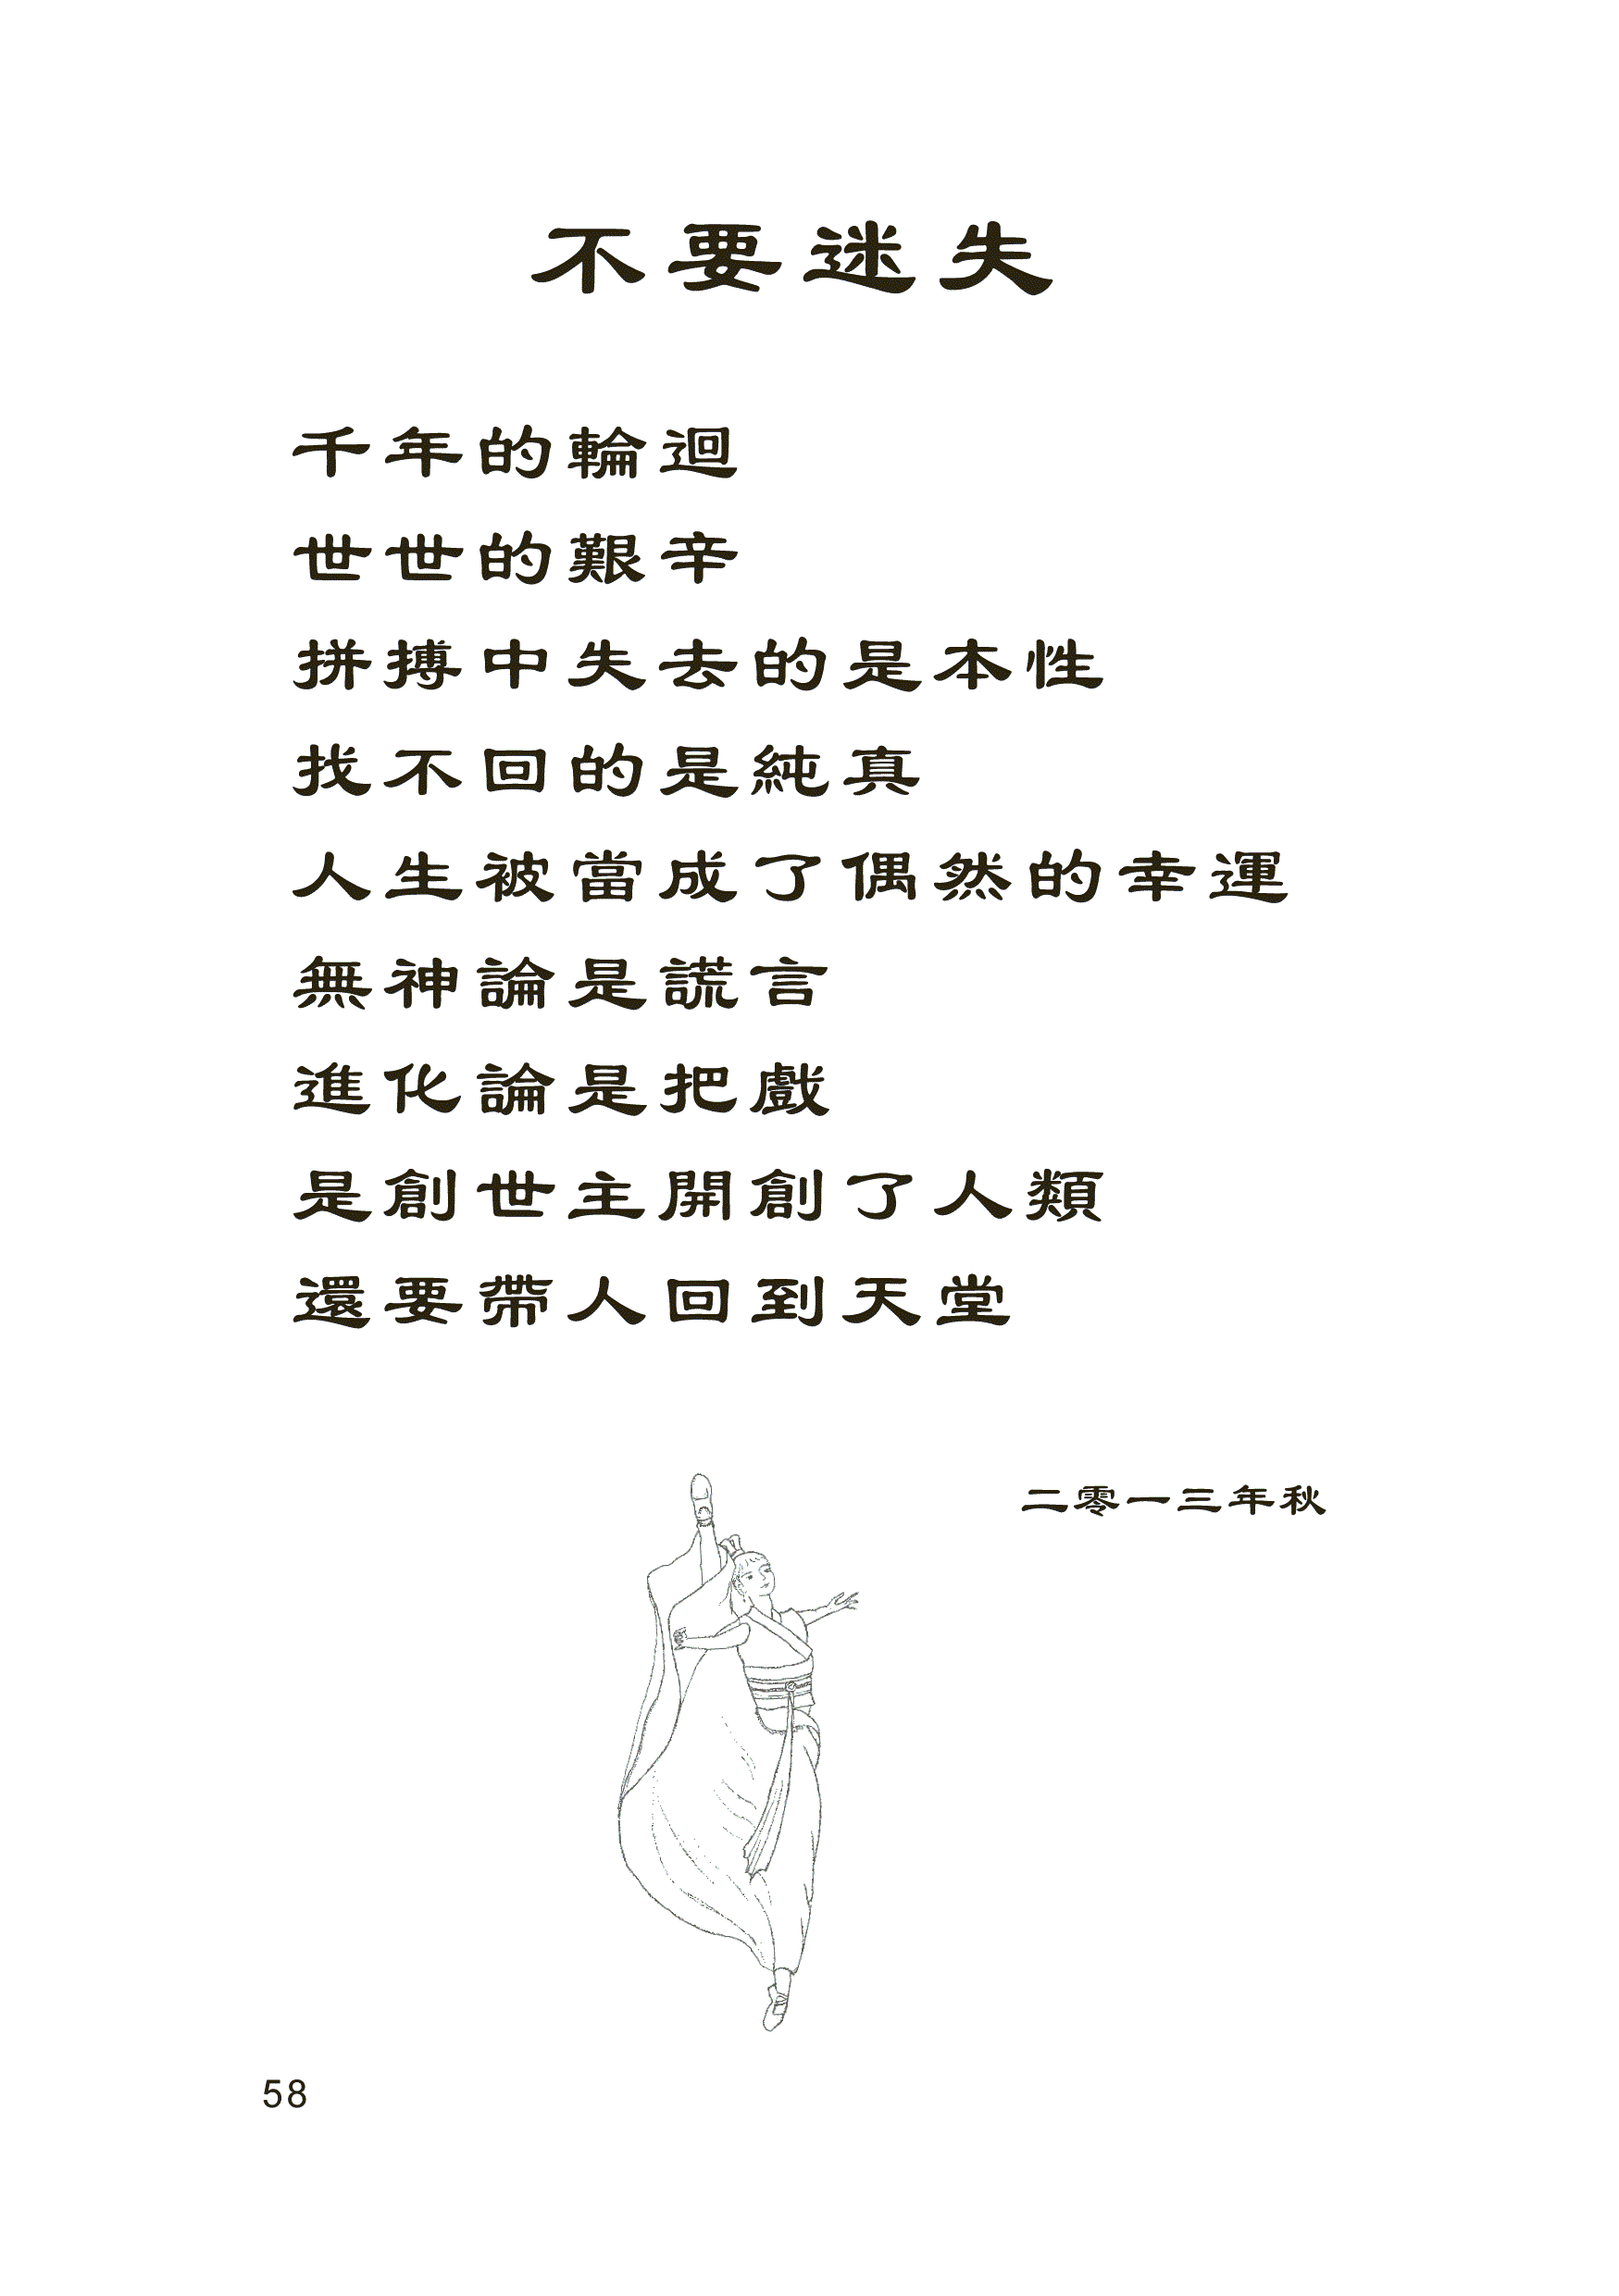 不要迷失
千年的輪迴
世世的艱辛
拼搏中失去的是本性
找不回的是純真
人生被當成了偶然的幸運
無神論是謊言
進化論是把戲
是創世主開創了人類
還要帶人回到天堂
二零一三年秋
58